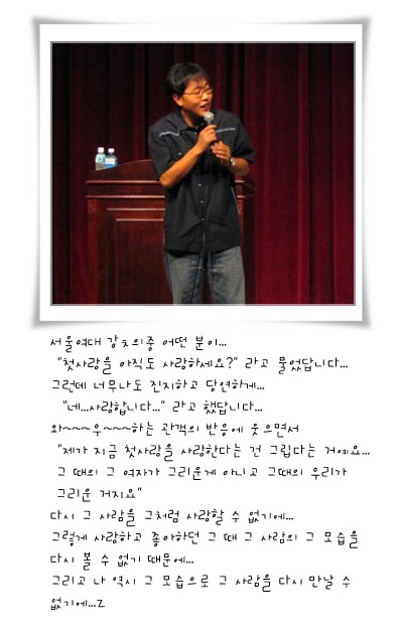 서울여대 강츼의중 어떤 분이...
"첫사랑을 아직도 사랑하세요?" 라고 물었답니다...
그런데 너무나도 진지하고 당연하게...
"네...사랑합니다..." 라고 했답니다...
와~~~우~~~하는 관객의 반응에 웃으면서
"제가 지금 첫사랑을 사랑한다는 건 그립다는 거예요...
그 때의 그 여자가 그리운게 아니고 그때의 우리가
그리운 거지요"
다시 그 사람을 그처럼 사랑할 수 없기에...
그렇게 사랑하고 좋아하던 그 때 그 사람의 그 모습을
다시 볼 수 없기 때문에...
그리고 나 역시 그 모습으로 그 사람을 다시 만날 수
없기에...z